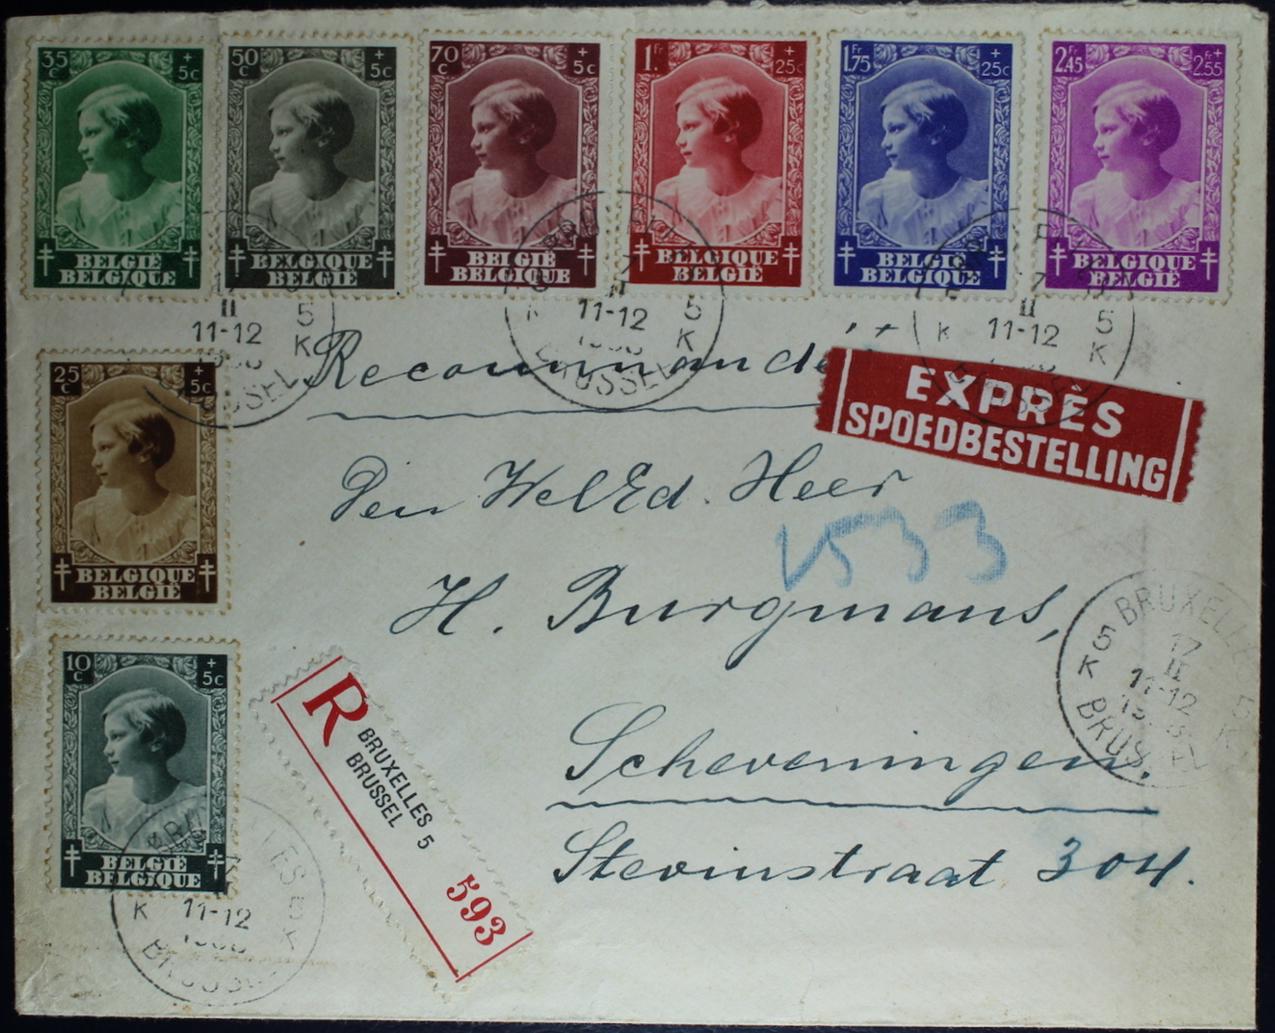 35 c + 5c
BELGIË
BELGIQUE
50 c + 5c
BELGIQUE
BELGIË
70 c + 5c
BELGIË
BELGIQUE
1 Fr. + 25c
BELGIQUE
BELGIË
1 Fr 75 + 25c
BELGIË
BELGIQUE
2 Fr 45 + 2 Fr 55
BELGIQUE
BELGIË
II
11-12
5
K
BRUSSEL
II
11-12
5
K
BRUSSEL
II
K 11-12 5
K
Recommandé
EXPRÈS
SPOEDBESTELLING
25 c + 5c
BELGIQUE
BELGIË
Den WelEd. Heer
1533
H. Burgmans,
10 c + 5c
BELGIË
BELGIQUE
R
BRUXELLES 5
BRUSSEL
593
BRUXELLES 5
17
II
11-12
5 K
BRUSSEL
K
Scheveningen.
Stevinstraat 304.
K 11-12 5
K
BRUSSEL